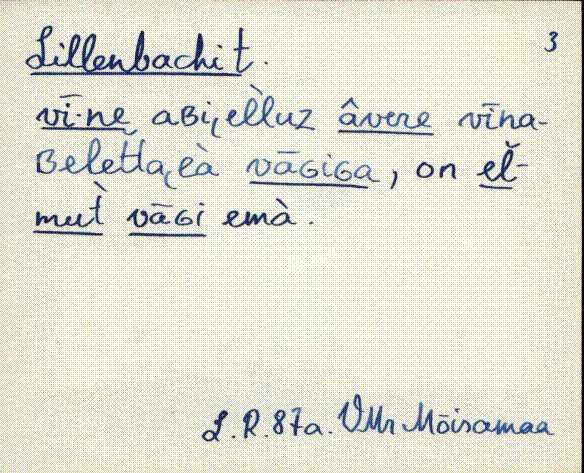 Lillenbachi t.
3
vī·ne͔ aʙi̮ èlluz âvere vīna-
ʙeletta̮ ɛà vāɢiɢa, on el̆-
mut̀ vāɢi emà.
L.R. 87a. VMr Mõisamaa